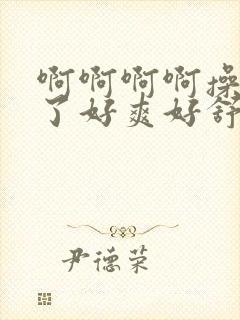 啊啊啊啊操
了好爽好舒
尹德荣